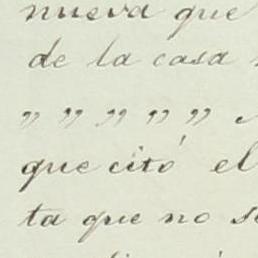 nueva que
de la casa
„ „ „ „ „
que citó el
ta que no